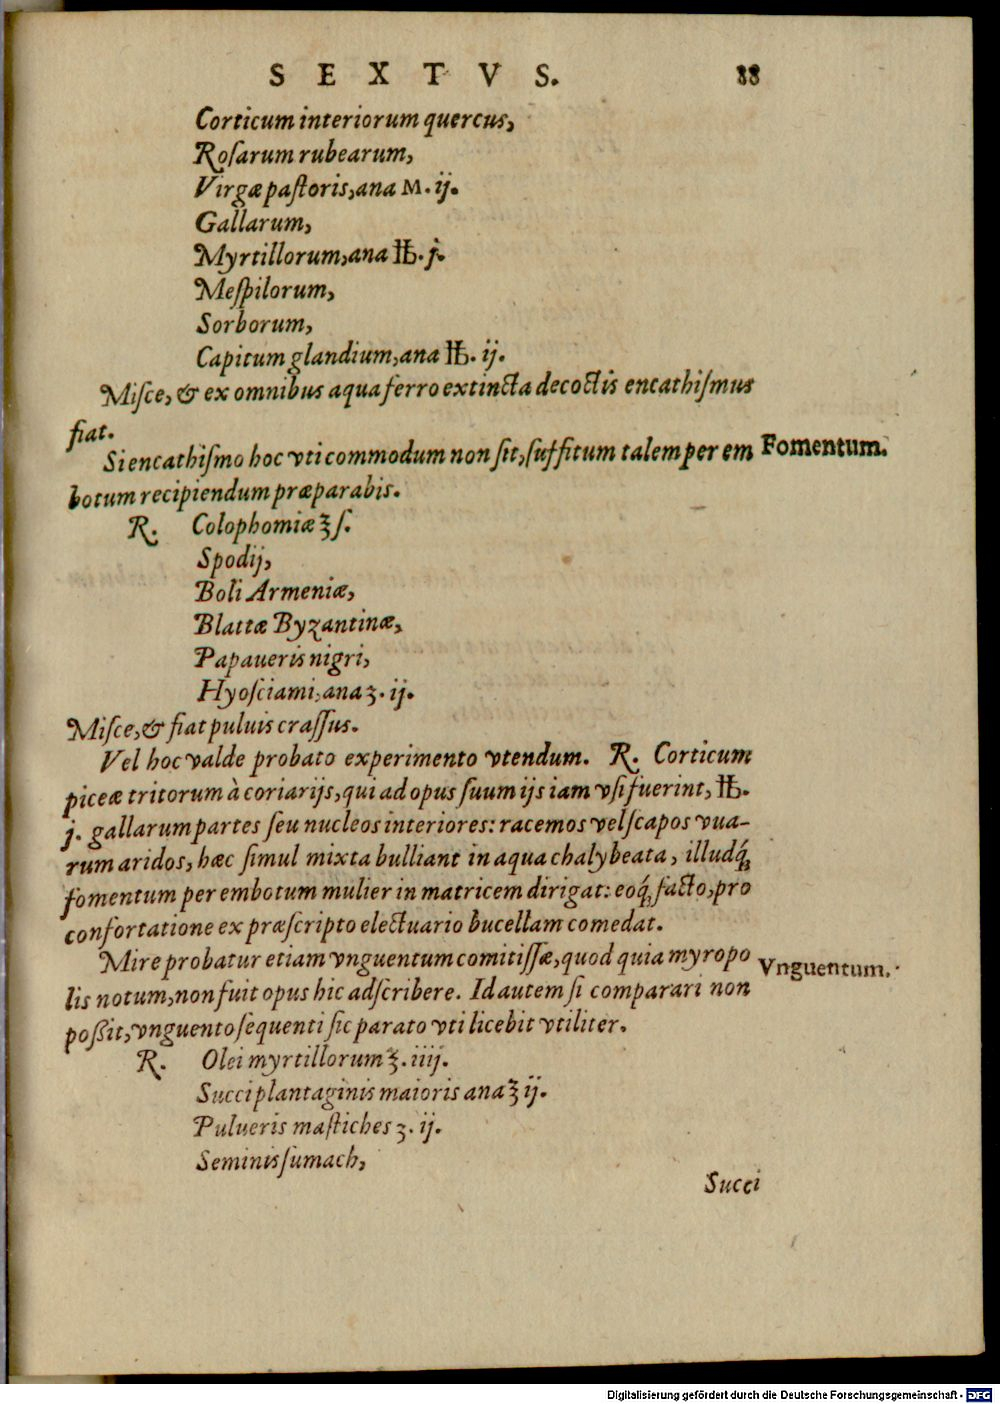 SEXTVS. 88
Corticum interiorum quercus,
Roſarum rubearum,
Virgæ paſtoris, ana M. ij.
Gallarum,
Myrtillorum, ana ℔. j.
Meſpilorum,
Sorborum,
Capitum glandium, ana ℔. ij.
Miſce, & ex omnibus aqua ferro extincta decoctis encathiſmus
fiat.
Si encathiſmo hoc vti commodum non ſit, ſuffitum talem per em Fomentum.
botum recipiendum præparabis.
R. Colophomiæ ℥ ſ.
Spodij,
Boli Armeniæ,
Blattæ Byzantinæ,
Papaueris nigri,
Hyoſciami, ana ʒ. ij.
Miſce, & fiat puluis craſſus.
Vel hoc valde probato experimento vtendum. R. Corticum
piceæ tritorum à coriarijs, qui ad opus ſuum ijs iam vſi fuerint, ℔.
j. gallarum partes ſeu nucleos interiores: racemos vel ſcapos vua-
rum aridos, hæc ſimul mixta bulliant in aqua chalybeata, illudq́;
fomentum per embotum mulier in matricem dirigat: eoq́; facto, pro
confortatione ex præſcripto electuario bucellam comedat.
Mire probatur etiam vnguentum comitiſſæ, quod quia myropo Vnguentum.
lis notum, non fuit opus hic adſcribere. Id autem ſi comparari non
poßit, vnguento ſequenti ſic parato vti licebit vtiliter.
R. Olei myrtillorum ℥. iiij.
Succi plantaginis maioris ana ℥ ij.
Pulueris maſtiches ʒ. ij.
Seminis ſumach,
Succi
Digitalisierung gefördert durch die Deutsche Forschungsgemeinschaft - DFG